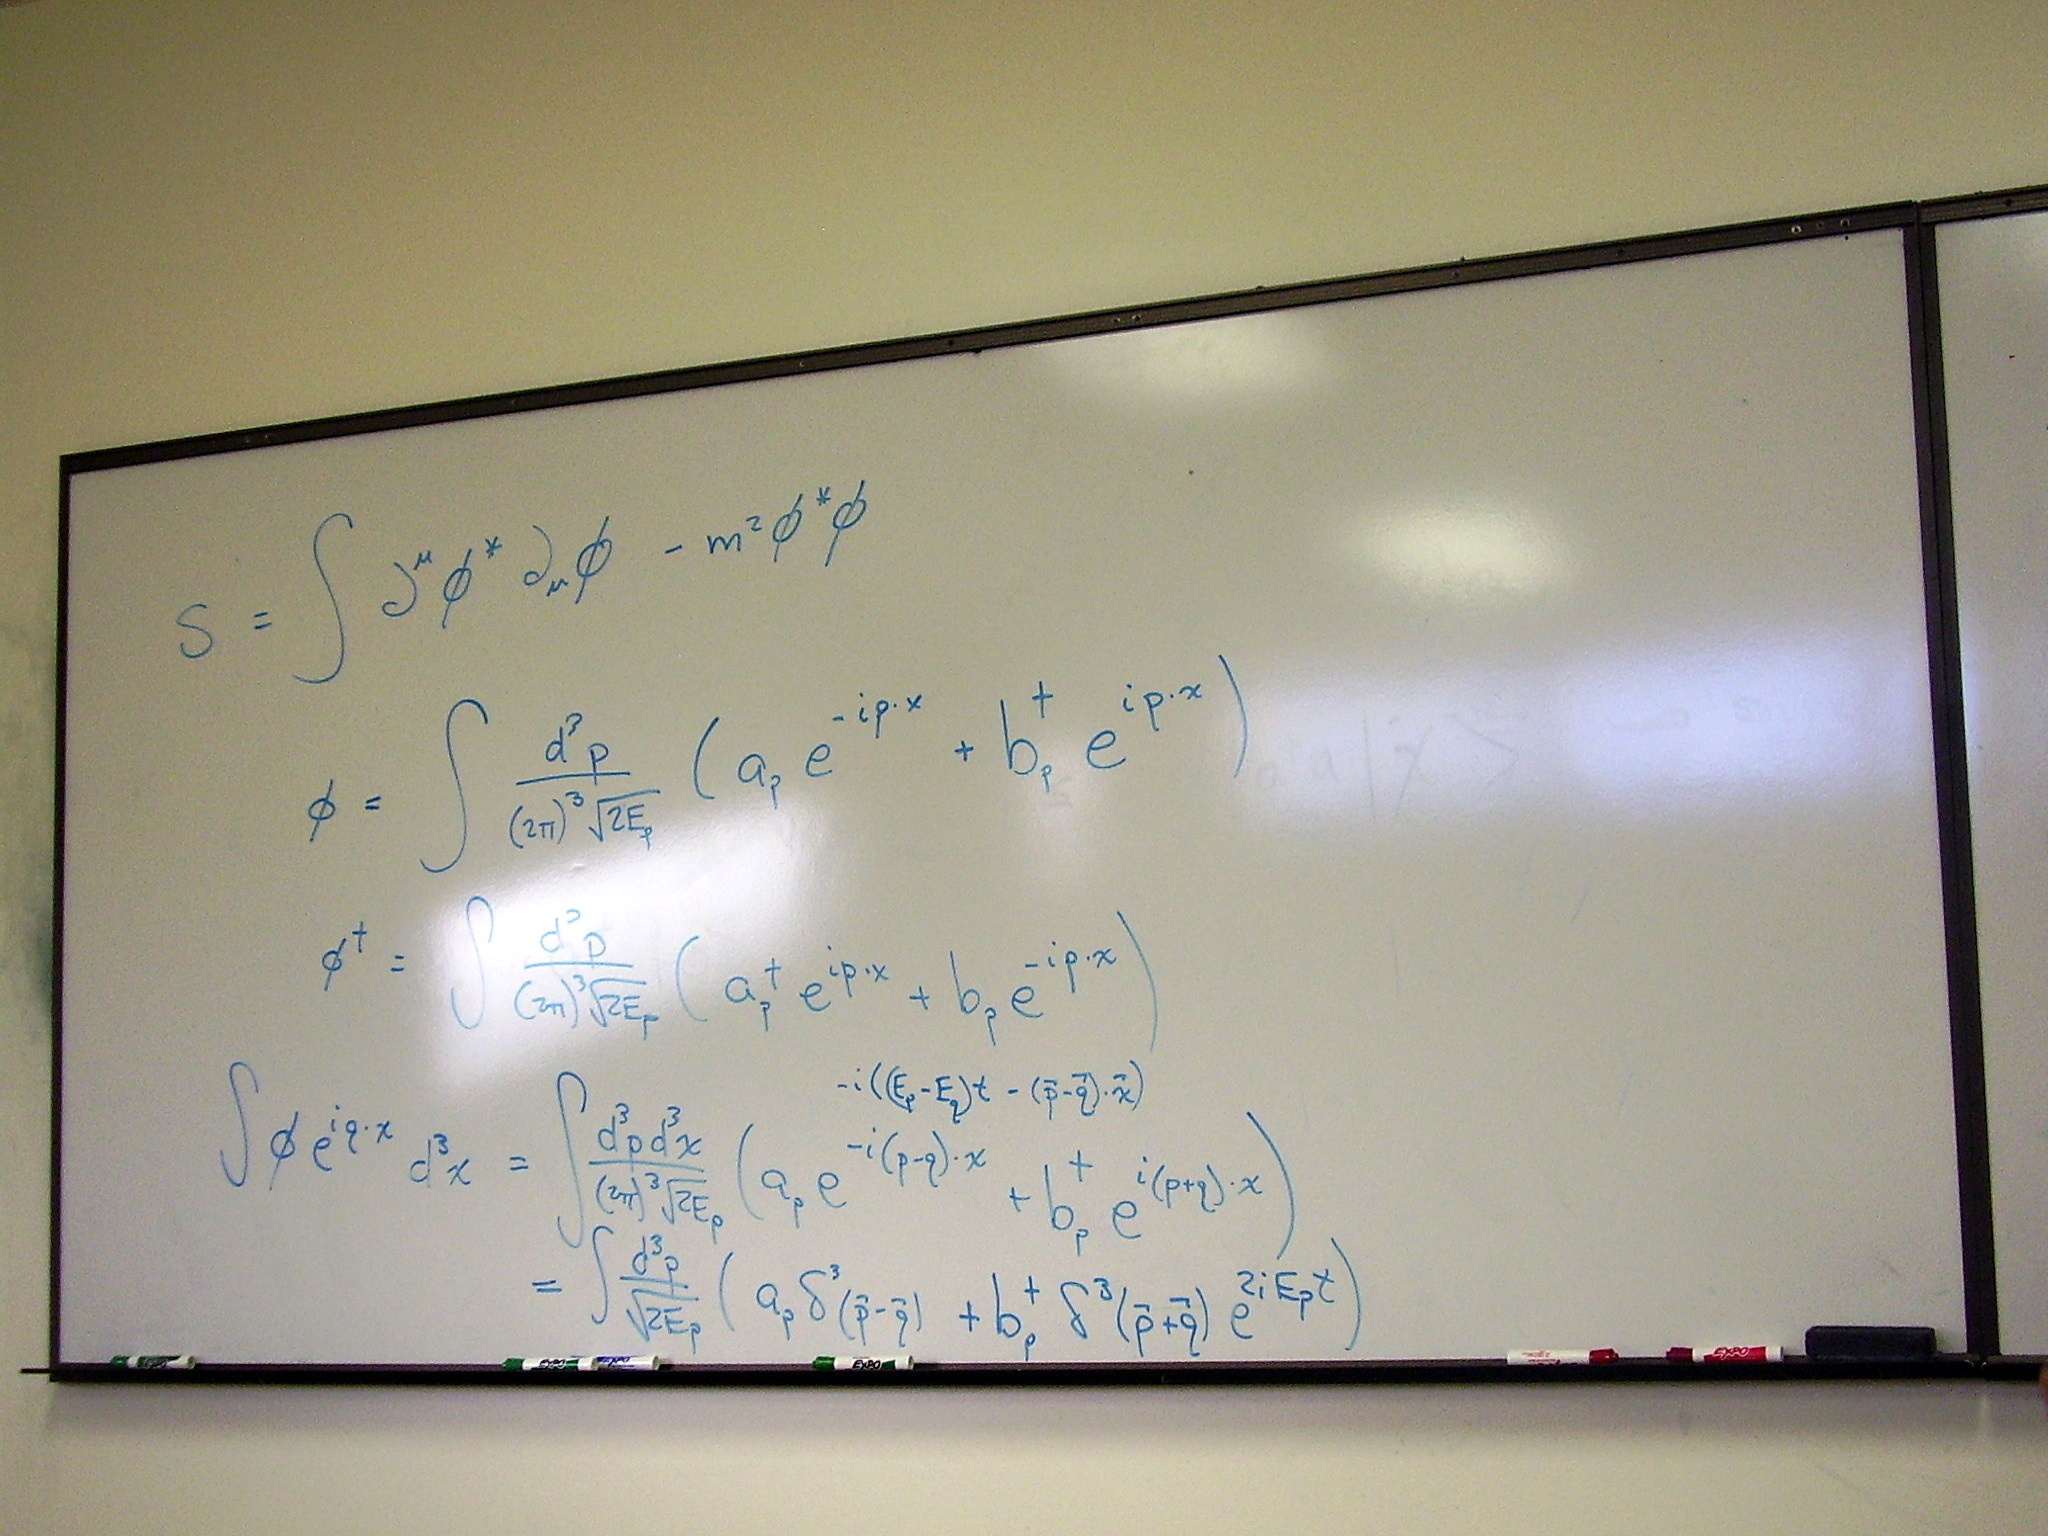 S = ∫ ∂^μ φ* ∂_μ φ - m² φ* φ
φ = ∫ d³p / ((2π)³ √(2E_p)) (a_p e^(-ip·x) + b_p^† e^(ip·x))
φ^† = ∫ d³p / ((2π)³ √(2E_p)) (a_p^† e^(ip·x) + b_p e^(-ip·x))
-i((E_p - E_q)t - (p⃗-q⃗)·x⃗)
∫ φ e^(iq·x) d³x = ∫ d³p d³x / ((2π)³ √(2E_p)) (a_p e^(-i(p-q)·x) + b_p^† e^(i(p+q)·x))
= ∫ d³p / √(2E_p) (a_p δ³(p⃗-q⃗) + b_p^† δ³(p⃗+q⃗) e^(2iE_p t))
EXPO EXPO EXPO EXPO